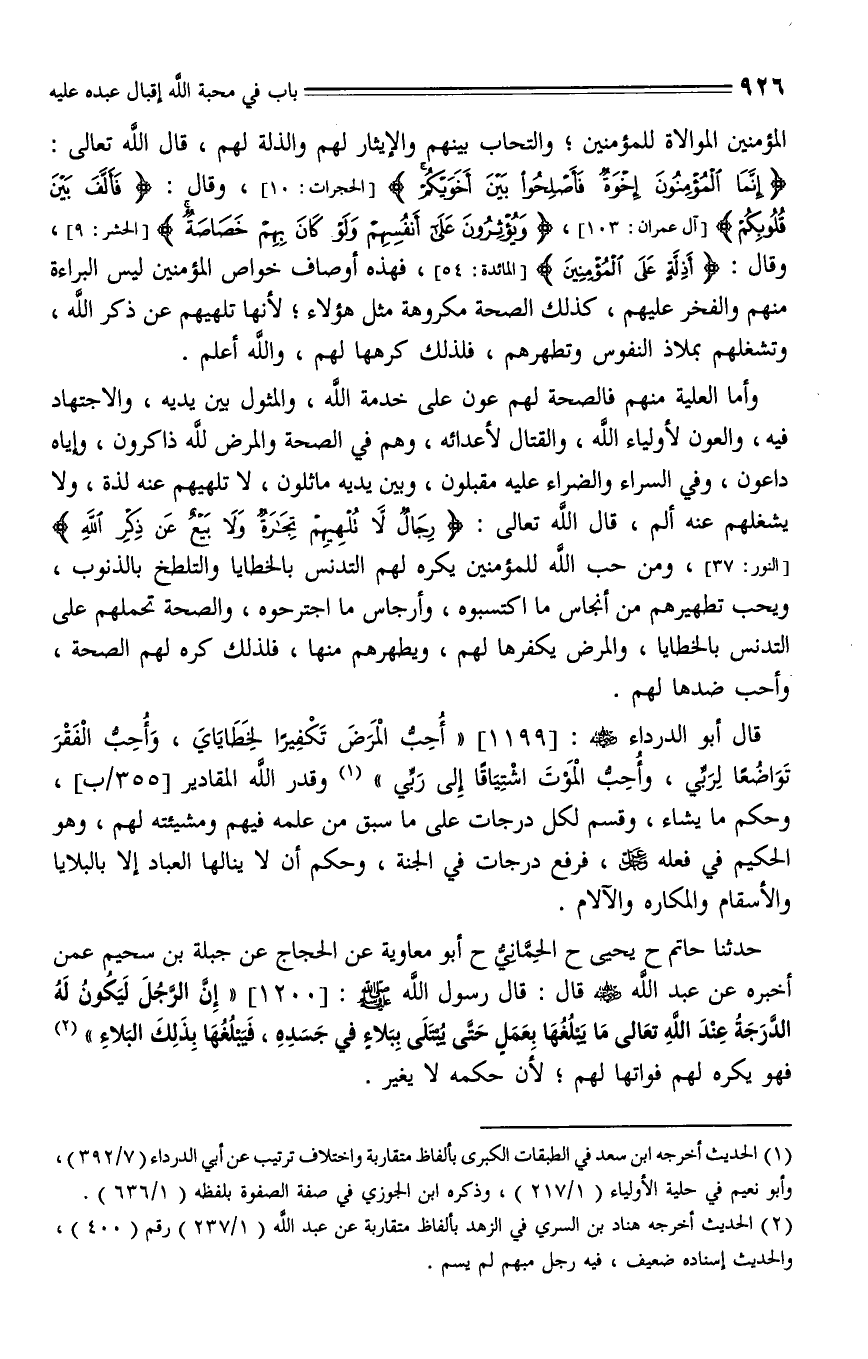 ٩٢٦ باب في محبة اللَّه إقبال عبده عليه
المؤمنين الموالاة للمؤمنين ؛ والتحاب بينهم والإيثار لهم والذلة لهم ، قال اللَّه تعالى :
﴿ إِنَّمَا الْمُؤْمِنُونَ إِخْوَةٌ فَأَصْلِحُوا بَيْنَ أَخَوَيْكُمْ ﴾ [الحجرات: ١٠] ، وقال : ﴿ فَأَلَّفَ بَيْنَ
قُلُوبِكُمْ ﴾ [آل عمران: ١٠٣] ، ﴿ وَيُؤْثِرُونَ عَلَىٰ أَنفُسِهِمْ وَلَوْ كَانَ بِهِمْ خَصَاصَةٌ ﴾ [الحشر: ٩] ،
وقال : ﴿ أَذِلَّةٍ عَلَى الْمُؤْمِنِينَ ﴾ [المائدة: ٥٤] ، فهذه أوصاف خواص المؤمنين ليس البراءة
منهم والفخر عليهم ، كذلك الصحة مكروهة مثل هؤلاء ؛ لأنها تلهيهم عن ذكر اللَّه ،
وتشغلهم بملاذ النفوس وتطهرهم ، فلذلك كرهها لهم ، واللَّه أعلم .
وأما العلية منهم فالصحة لهم عون على خدمة اللَّه ، والمثول بين يديه ، والاجتهاد
فيه ، والعون لأولياء اللَّه ، والقتال لأعدائه ، وهم في الصحة والمرض للَّه ذاكرون ، وإياه
داعون ، وفي السراء والضراء عليه مقبلون ، وبين يديه ماثلون ، لا تلهيهم عنه لذة ، ولا
يشغلهم عنه ألم ، قال اللَّه تعالى : ﴿ رِجَالٌ لَّا تُلْهِيهِمْ تِجَٰرَةٌ وَلَا بَيْعٌ عَن ذِكْرِ اللَّهِ ﴾
[النور: ٣٧] ، ومن حب اللَّه للمؤمنين يكره لهم التدنس بالخطايا والتلطخ بالذنوب ،
ويحب تطهيرهم من أنجاس ما اكتسبوه ، وأرجاس ما اجترحوه ، والصحة تحملهم على
التدنس بالخطايا ، والمرض يكفرها لهم ، ويطهرهم منها ، فلذلك كره لهم الصحة ،
وأحب ضدها لهم .
قال أبو الدرداء رضي الله عنه : [١١٩٩] « أُحِبُّ الْمَرَضَ تَكْفِيرًا لِخَطَايَايَ ، وَأُحِبُّ الْفَقْرَ
تَوَاضُعًا لِرَبِّي ، وأُحِبُّ الْمَوْتَ اشْتِيَاقًا إلى رَبِّي » (١) وقدر اللَّه المقادير [٣٥٥/ب] ،
وحكم ما يشاء ، وقسم لكل درجات على ما سبق من علمه فيهم ومشيئته لهم ، وهو
الحكيم في فعله عز وجل ، فرفع درجات في الجنة ، وحكم أن لا ينالها العباد إلا بالبلايا
والأسقام والمكاره والآلام .
حدثنا حاتم ح يحيى ح الحِمَّانِيُّ ح أبو معاوية عن الحجاج عن جبلة بن سحيم عمن
أخبره عن عبد اللَّه رضي الله عنه قال : قال رسول اللَّه ﷺ : [١٢٠٠] « إِنَّ الرَّجُلَ لَيَكُونُ لَهُ
الدَّرَجَةُ عِنْدَ اللَّهِ تعَالى مَا يَبْلُغُهَا بِعَمَلٍ حَتَّى يُبْتَلَى بِبَلاءٍ في جَسَدِهِ ، فَيَبْلُغُهَا بِذَلِكَ البَلاءِ » (٢)
فهو يكره لهم فواتها لهم ؛ لأن حكمه لا يغير .
(١) الحديث أخرجه ابن سعد في الطبقات الكبرى بألفاظ متقاربة واختلاف ترتيب عن أبي الدرداء ( ٣٩٢/٧ ) ،
وأبو نعيم في حلية الأولياء ( ٢١٧/١ ) ، وذكره ابن الجوزي في صفة الصفوة بلفظه ( ٦٣٦/١ ) .
(٢) الحديث أخرجه هناد بن السري في الزهد بألفاظ متقاربة عن عبد اللَّه ( ٢٣٧/١ ) رقم ( ٤٠٠ ) ،
والحديث إسناده ضعيف ، فيه رجل مبهم لم يسم .